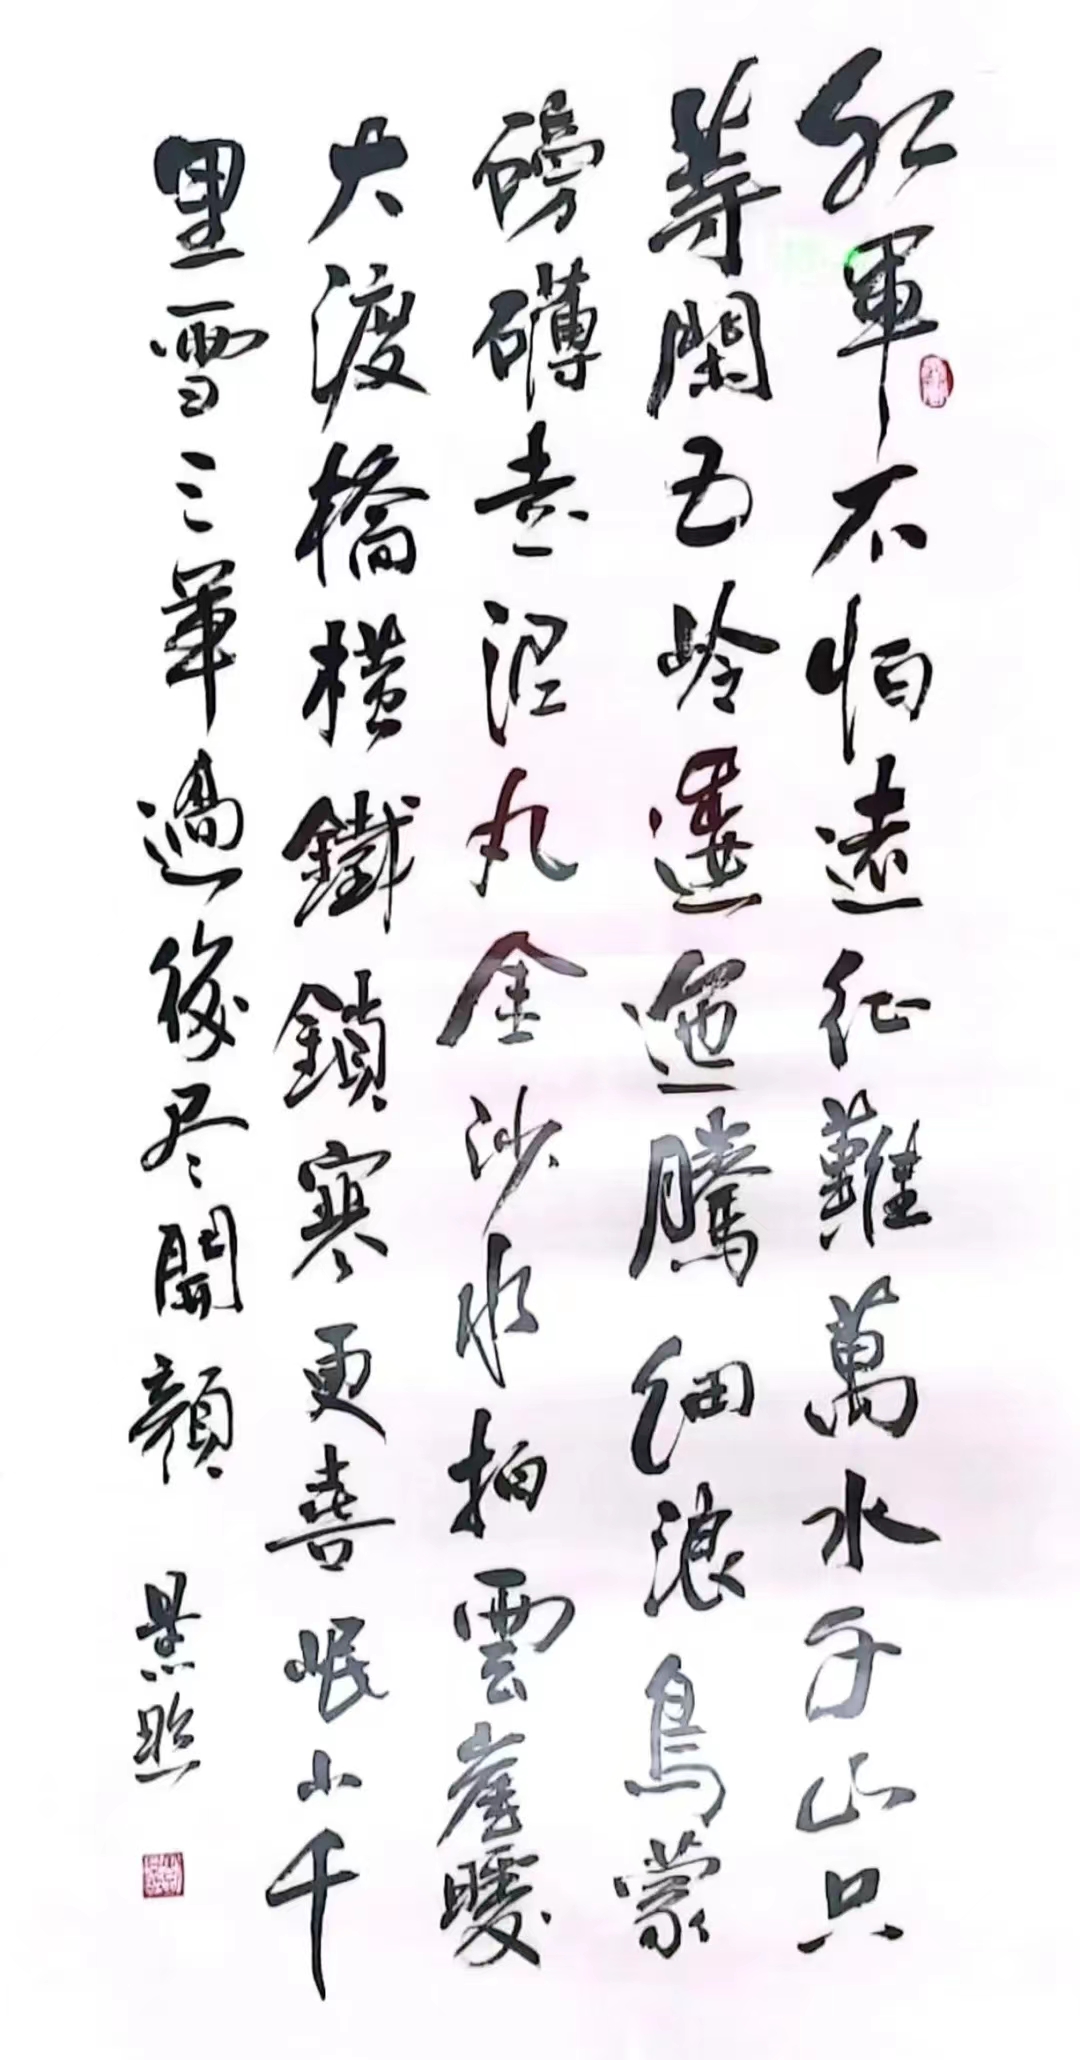 紅軍不怕遠征難萬水千山只
等閑五岭逶迤騰细浪烏蒙
磅礴走泥丸金沙水拍雲崖暖
大渡橋横鐵鎖寒更喜岷山千
里雪三軍過後尽開顔
景照